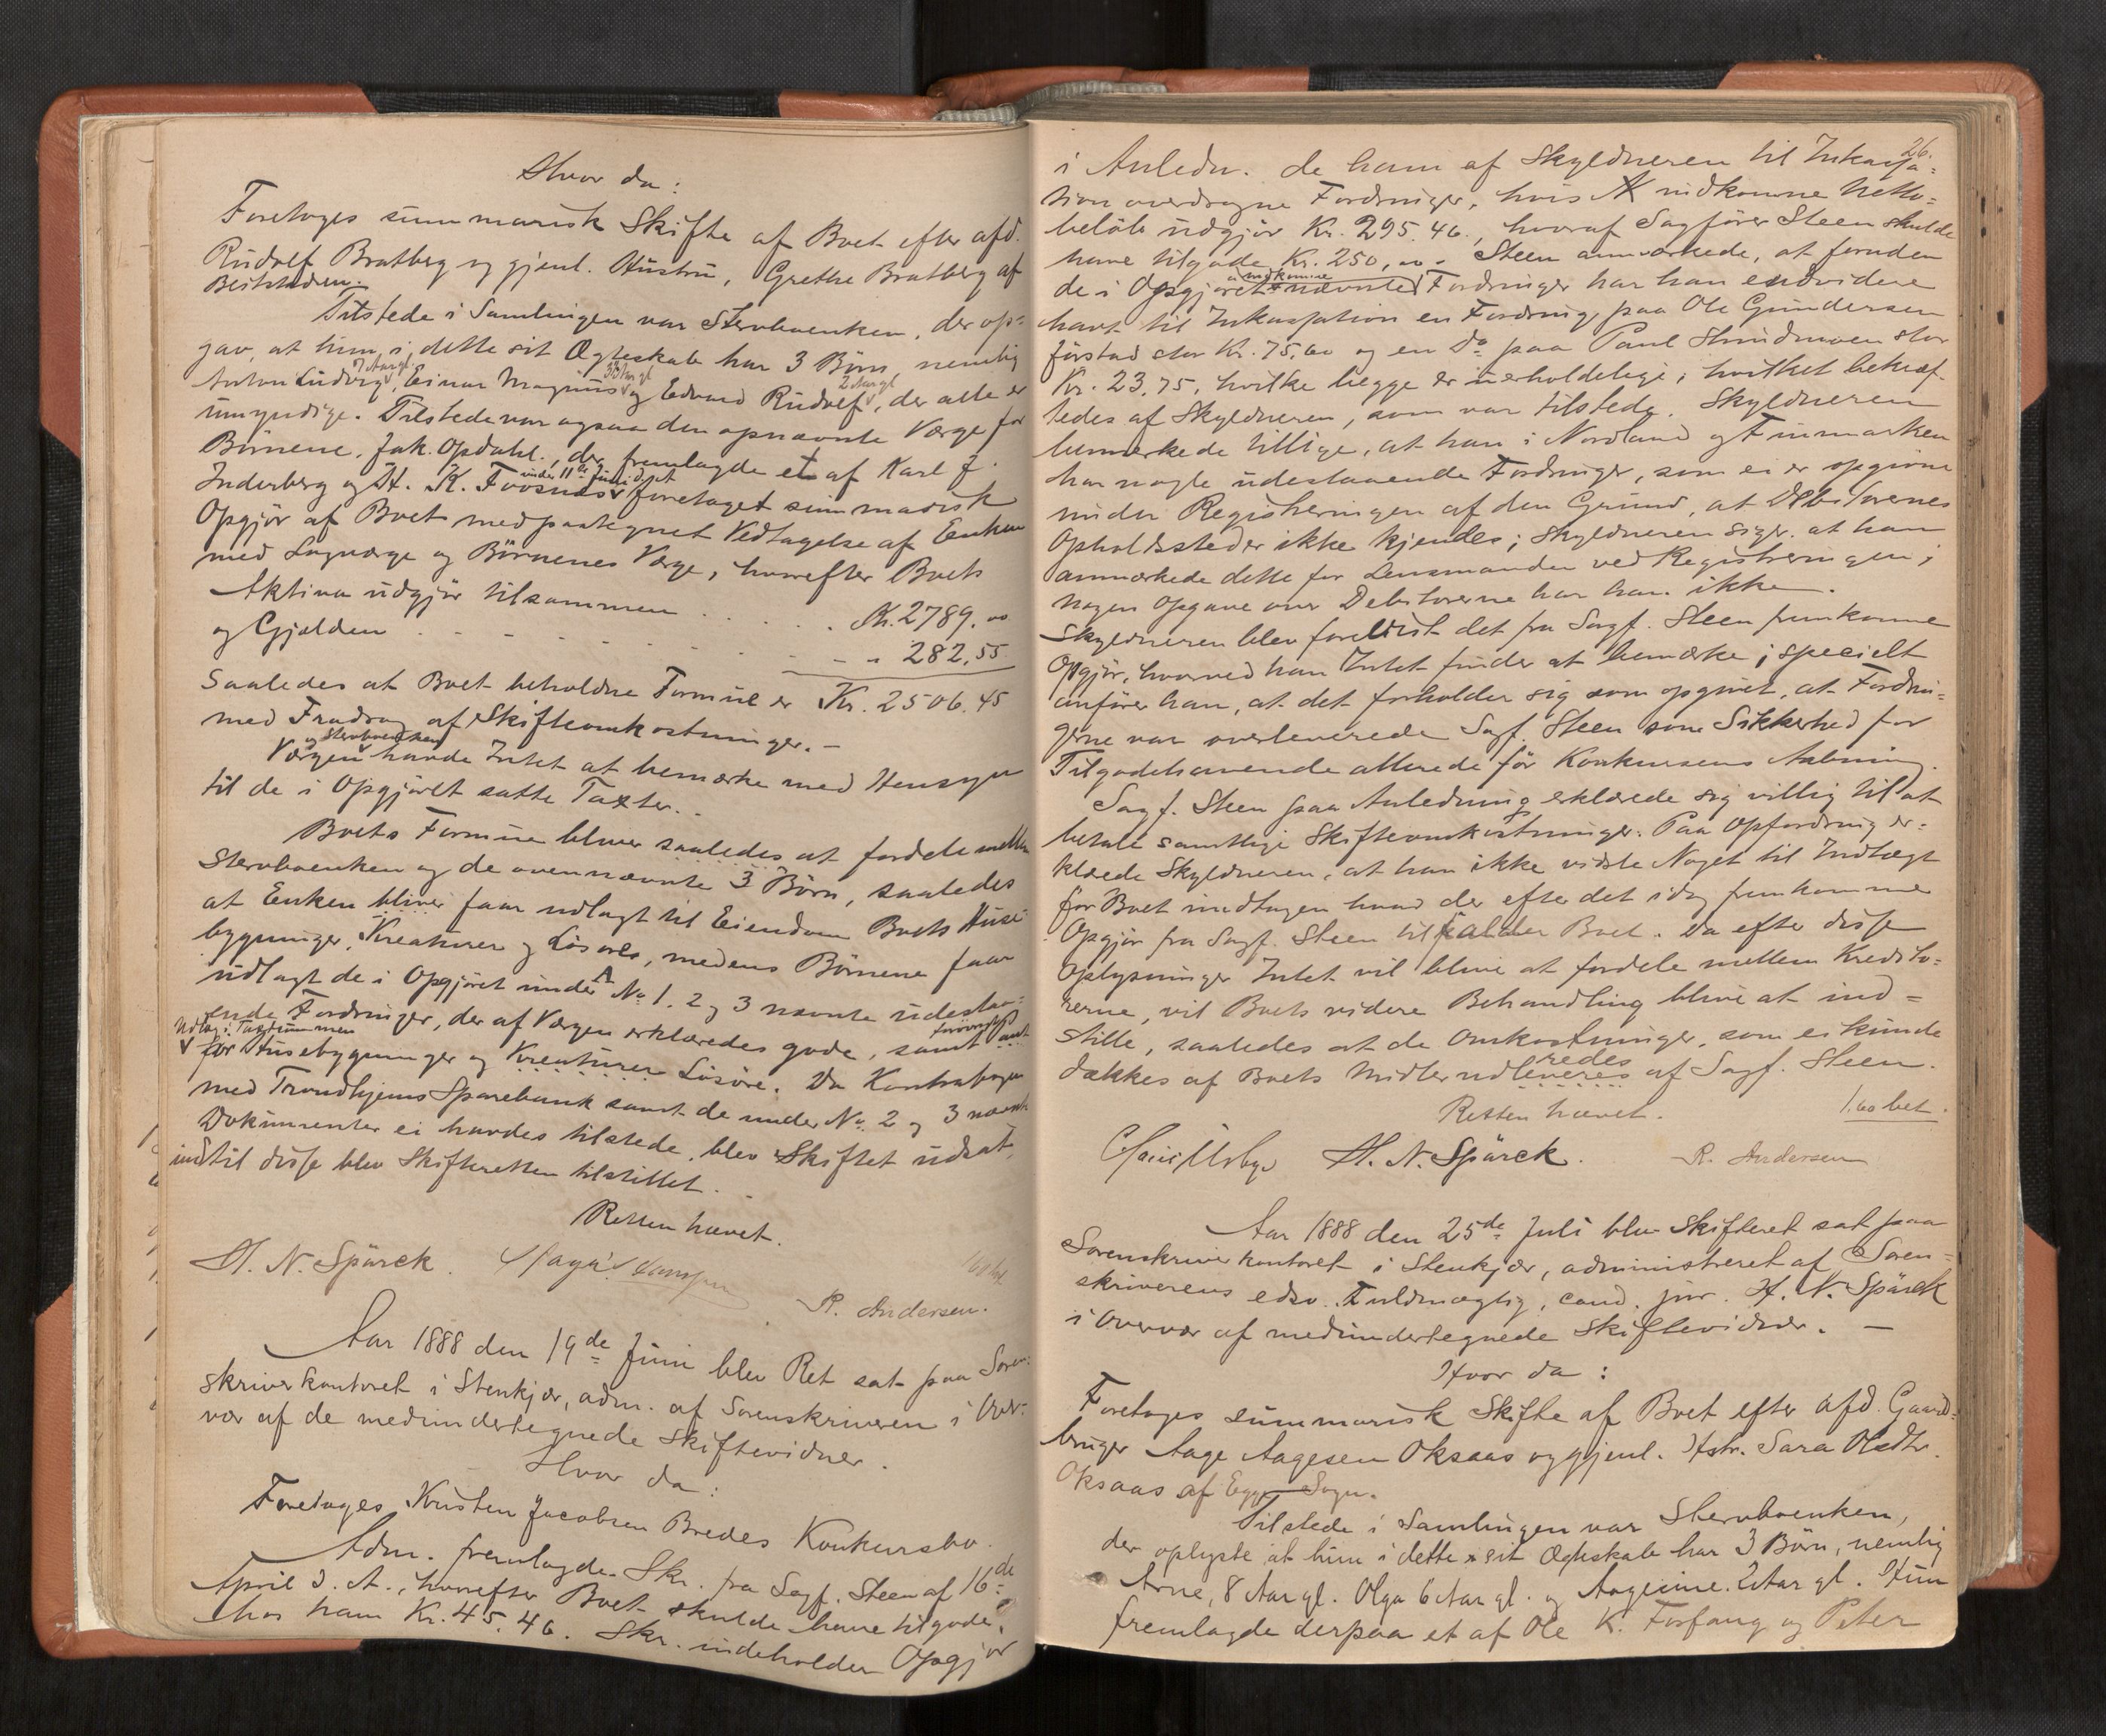 Hvor da:
Foretoges summarisk Skifte af Boet efter afd.
Rudolf Bratberg og gjenl. Hustru, Grethe Bratberg af
Beitstaden.
Tilstede i Samlingen var Stervboenken, der op=
gav, at hun i dette sit Ægteskab har 3 Børn, nemlig
7 Aar gl 3 Aar gl 2 Aar gl
Anton Ludvig, Einar Magnus og Edvard Rudolf, der alle er
umyndige. Tilstede var ogsaa den opnævnte Værge for
Børnene, Jak. Opdahl, der fremlagde et af Karl J.
under 11te Juni d.A.
Inderberg og H. K. Foosnæs foretaget summarisk
Opgjør af Boet med paategnet Vedtagelse af Enken
med Lagværge og Børnenes Værge, hvorefter Boets
Aktiva udgjør tilsammen . . . . . Kr. 2789,00
og Gjælden . . . . . . . . - " 282,55
Saaledes at Boet beholdne Formue er Kr. 2506.45
med Fradrag af Skifteomkostninger.-
og Stervboenken
Værgen havde Intet at bemærke med Hensyn
til de i Opgjøret satte Taxter.
Boets Formue bliver saaledes at fordele mellem
Stervboenken og de ovennævnte 3 Børn, saaledes
at Enken bliver faar udlagt til Eiendom Boets Huse
bygninger, Kreaturer og Løsøre, medens Børnene faar
udlagt de i Opgjøret under A No 1. 2 og 3 nævnte udestaa=
ende Fordringer, der af Værgen erklæredes gode, samt
Udlæg i Taxtsummen forøvrigt
for Husebygninger og Kreaturer Løsøre. Da Kontrabogen
med Trondhjems Sparebank samt de under No. 2 og 3 nævnte
Dokumenter ei havdes tilstede, blev Skiftet udsat,
indtil disse blev Skifteretten tilstillet.
Retten hævet.
H. N. Spärck.
R. Andersen.
Aar 1888 den 19de Juni blev Ret sat paa Soren=
skriverkontoret i Stenkjær, adm. af Sorenskriveren i Over=
vær af de medundertegnede Skiftevidner.
Hvor da:
Foretoges Kristen Jacobsen Bredes Konkursbo.
Adm. fremlagde Skr. fra Sagf. Steen af 16de
April d. A., hvorefter Boet skulde have tilgode
hos ham Kr. 45.46. Skr. indeholder Opgjør
26.
i Anledn. de ham af Skyldneren til Inkassa=
tion overdragne Fordringer, hvis indkomne Netto=
beløb udgjør Kr. 295.46., hvoraf Sagfører Steen skulde
have tilgode Kr. 250,00. Steen anmærkede, at foruden
indkomne
de i Opgjøret nævnte Fordringer har han endvidere
havt til Inkassation en Fordring paa Ole Gundersen
Førstad stor Kr. 75,60 og en Do paa Paul Strindmoen stor
Kr. 23,75, hvilke begge er uerholdelige, hvilket bekræf-
tedes af Skyldneren, som var tilstede. Skyldneren
bemærkede tillige, at han i Nordland og Finmarken
har nogle udestaaende Fordringer, som ei er opgivne
under Registreringen af den Grund, at Debitorenes
Opholdssteder ikke kjendes; Skyldneren siger, at han
anmærkede dette for Lensmanden ved Registreringen;
nogen Opgave over Debitorerne har han ikke.
Skyldneren blev forelæst det fra Sagf. Steen fremkomne
Opgjør, hvorved han Intet finder at bemærke; specielt
anfører han, at det forholder sig som opgivet, at Fordrin=
gerne var overleverede Sagf. Steen som Sikkerhed for
Tilgodehavende allerede før Konkursens Aabning.
Sagf. Steen paa Anledning erklærede sig villig til at
betale samtlige Skifteomkostninger. Paa Opfordring er=
klærede Skyldneren, at han ikke vidste Noget til Indtægt
for Boet undtagen hvad der efter det idag fremkomne
Opgjør fra Sagf. Steen tilfalder Boet. Da efter disse
Oplysninger Intet vil blive at fordele mellem Kredito=
rerne, vil Boets videre Behandling blive at ind=
stille, saaledes at de Omkostninger, som ei kunde
dækkes af Boets Midler udleveres redes af Sagf. Steen.
Retten hævet. 1.60 bet.
H. N. Spärck. R. Andersen
Aar 1888 den 25de Juli blev Skifteret sat paa
Sorenskriverkontoret i Stenkjær, administreret af Soren=
skriverens edsv. Fuldmægtig, cand. jur. H. N. Spärck
i Overvær af medundertegnede Skiftevidner. -
Hvor da:
Foretoges summarisk Skifte af Boet efter afd. Gaard=
bruger Aage Aagesen Oksaas og gjenl. Hstr. Sara Olsdtr.
Oksaas af Egge Sogn.
Tilstede i Samlingen var Stervboenken,
der oplyste at hun i dette sit Ægteskab har 3 Børn, nemlig
Arne, 8 Aar gl. Olga 6 Aar gl. og Aagerine 2 Aar gl. Hun
fremlagde derpaa et af Ole K. Forfang og Peter